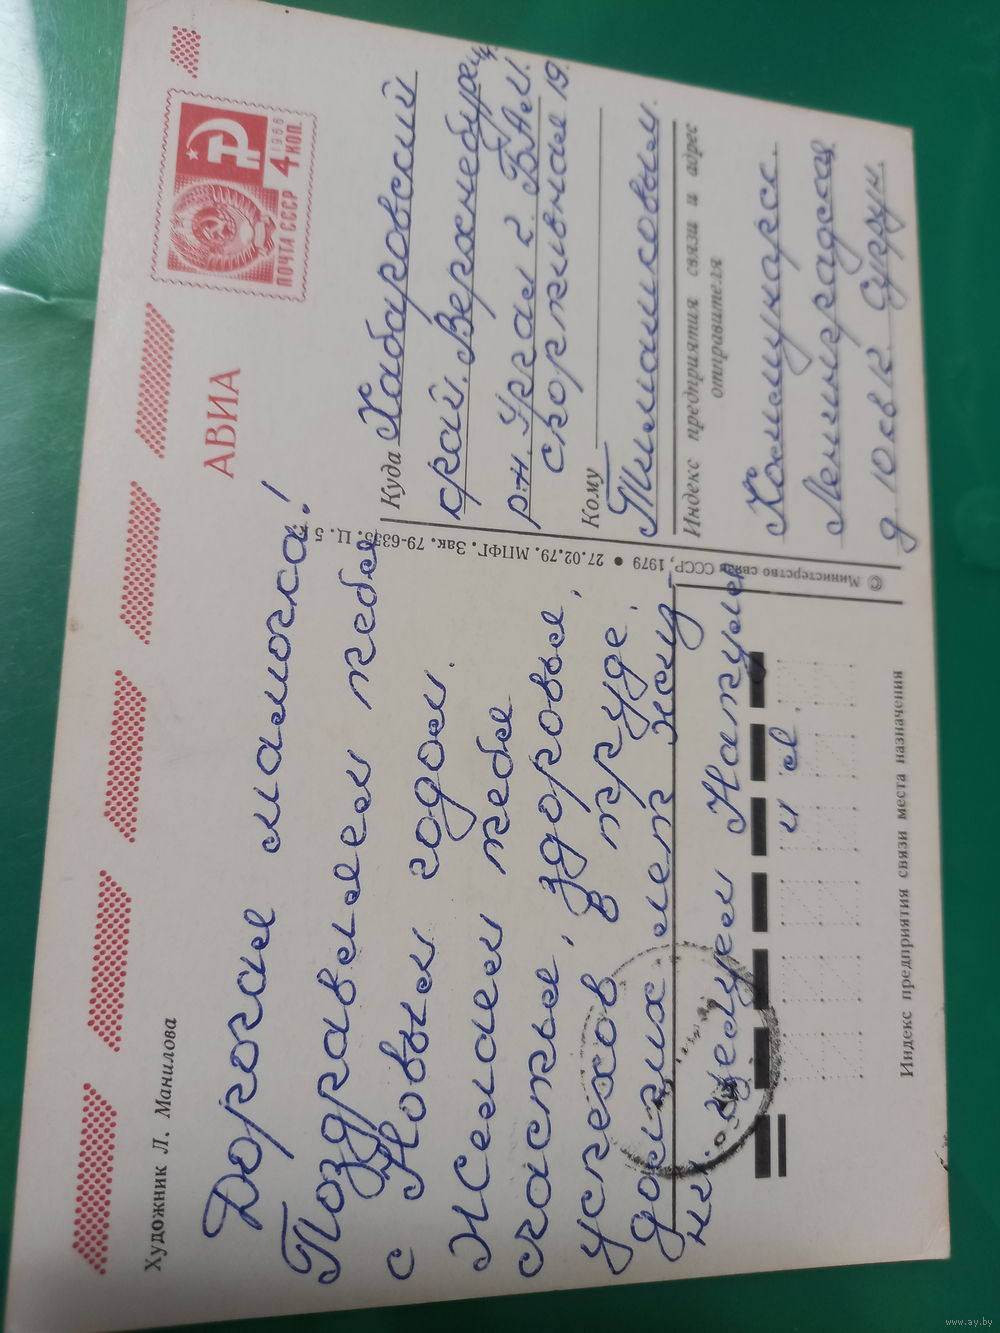 Художник Л. Манилова
АВИА
1966
4 КОП.
ПОЧТА СССР
Дорогая мамочка!
Поздравляем тебя
с Новым годом.
Желаем тебя
счастья, здоровья,
успехов в труде.
долгих лет жиз
ни. целуем
Куда Хабаровский
край. Верхнебуреи
р-н. Ургал 2. БАМ.
спортивная 19.
Кому
Тимашковым.
Индекс предприятия связи и адрес
отправителя
Коммунарск.
Ленинградская
д 10 кв
© Министерство связи СССР, 1979 • 27.02.79. МПФГ. Зак. 79-6355. Ц. 5 к.
Индекс предприятия связи места назначения
www.ay.by